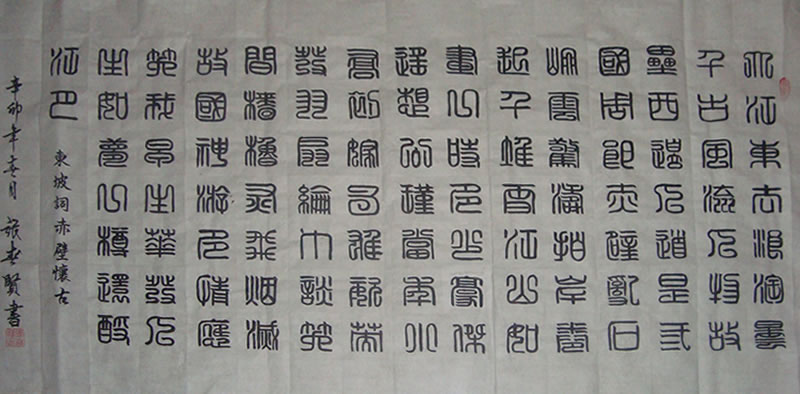 大江東去浪淘盡
千古風流人物故
壘西邊人道是三
國周郎赤壁亂石
崩雲驚濤拍岸卷
起千堆雪江山如
畫一時多少豪傑
遙想公瑾當年小
喬初嫁了雄姿英
發羽扇綸巾談笑
間檣櫓灰飛烟滅
故國神游多情應
笑我早生華發人
生如夢一樽還酹
江月
東坡詞赤壁懷古
辛卯年春月 賢書